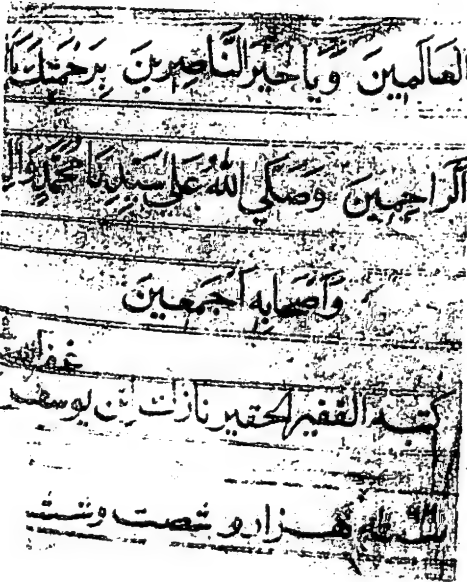 العَالَمِينَ وَيَا خَيْرَ النَّاصِرِينَ بِرَحْمَتِكَ يَا
اَلرَاحِمِينَ وَصَلَّي اللهُ عَلَي سَيِّدِنَا مُحَمَّدٍ وَالِ
وَاَصْحَابِهِ اَجْمَعِينَ
غفر
كتبه الفقير الحقير ابن يوسف
هزار و شصت و